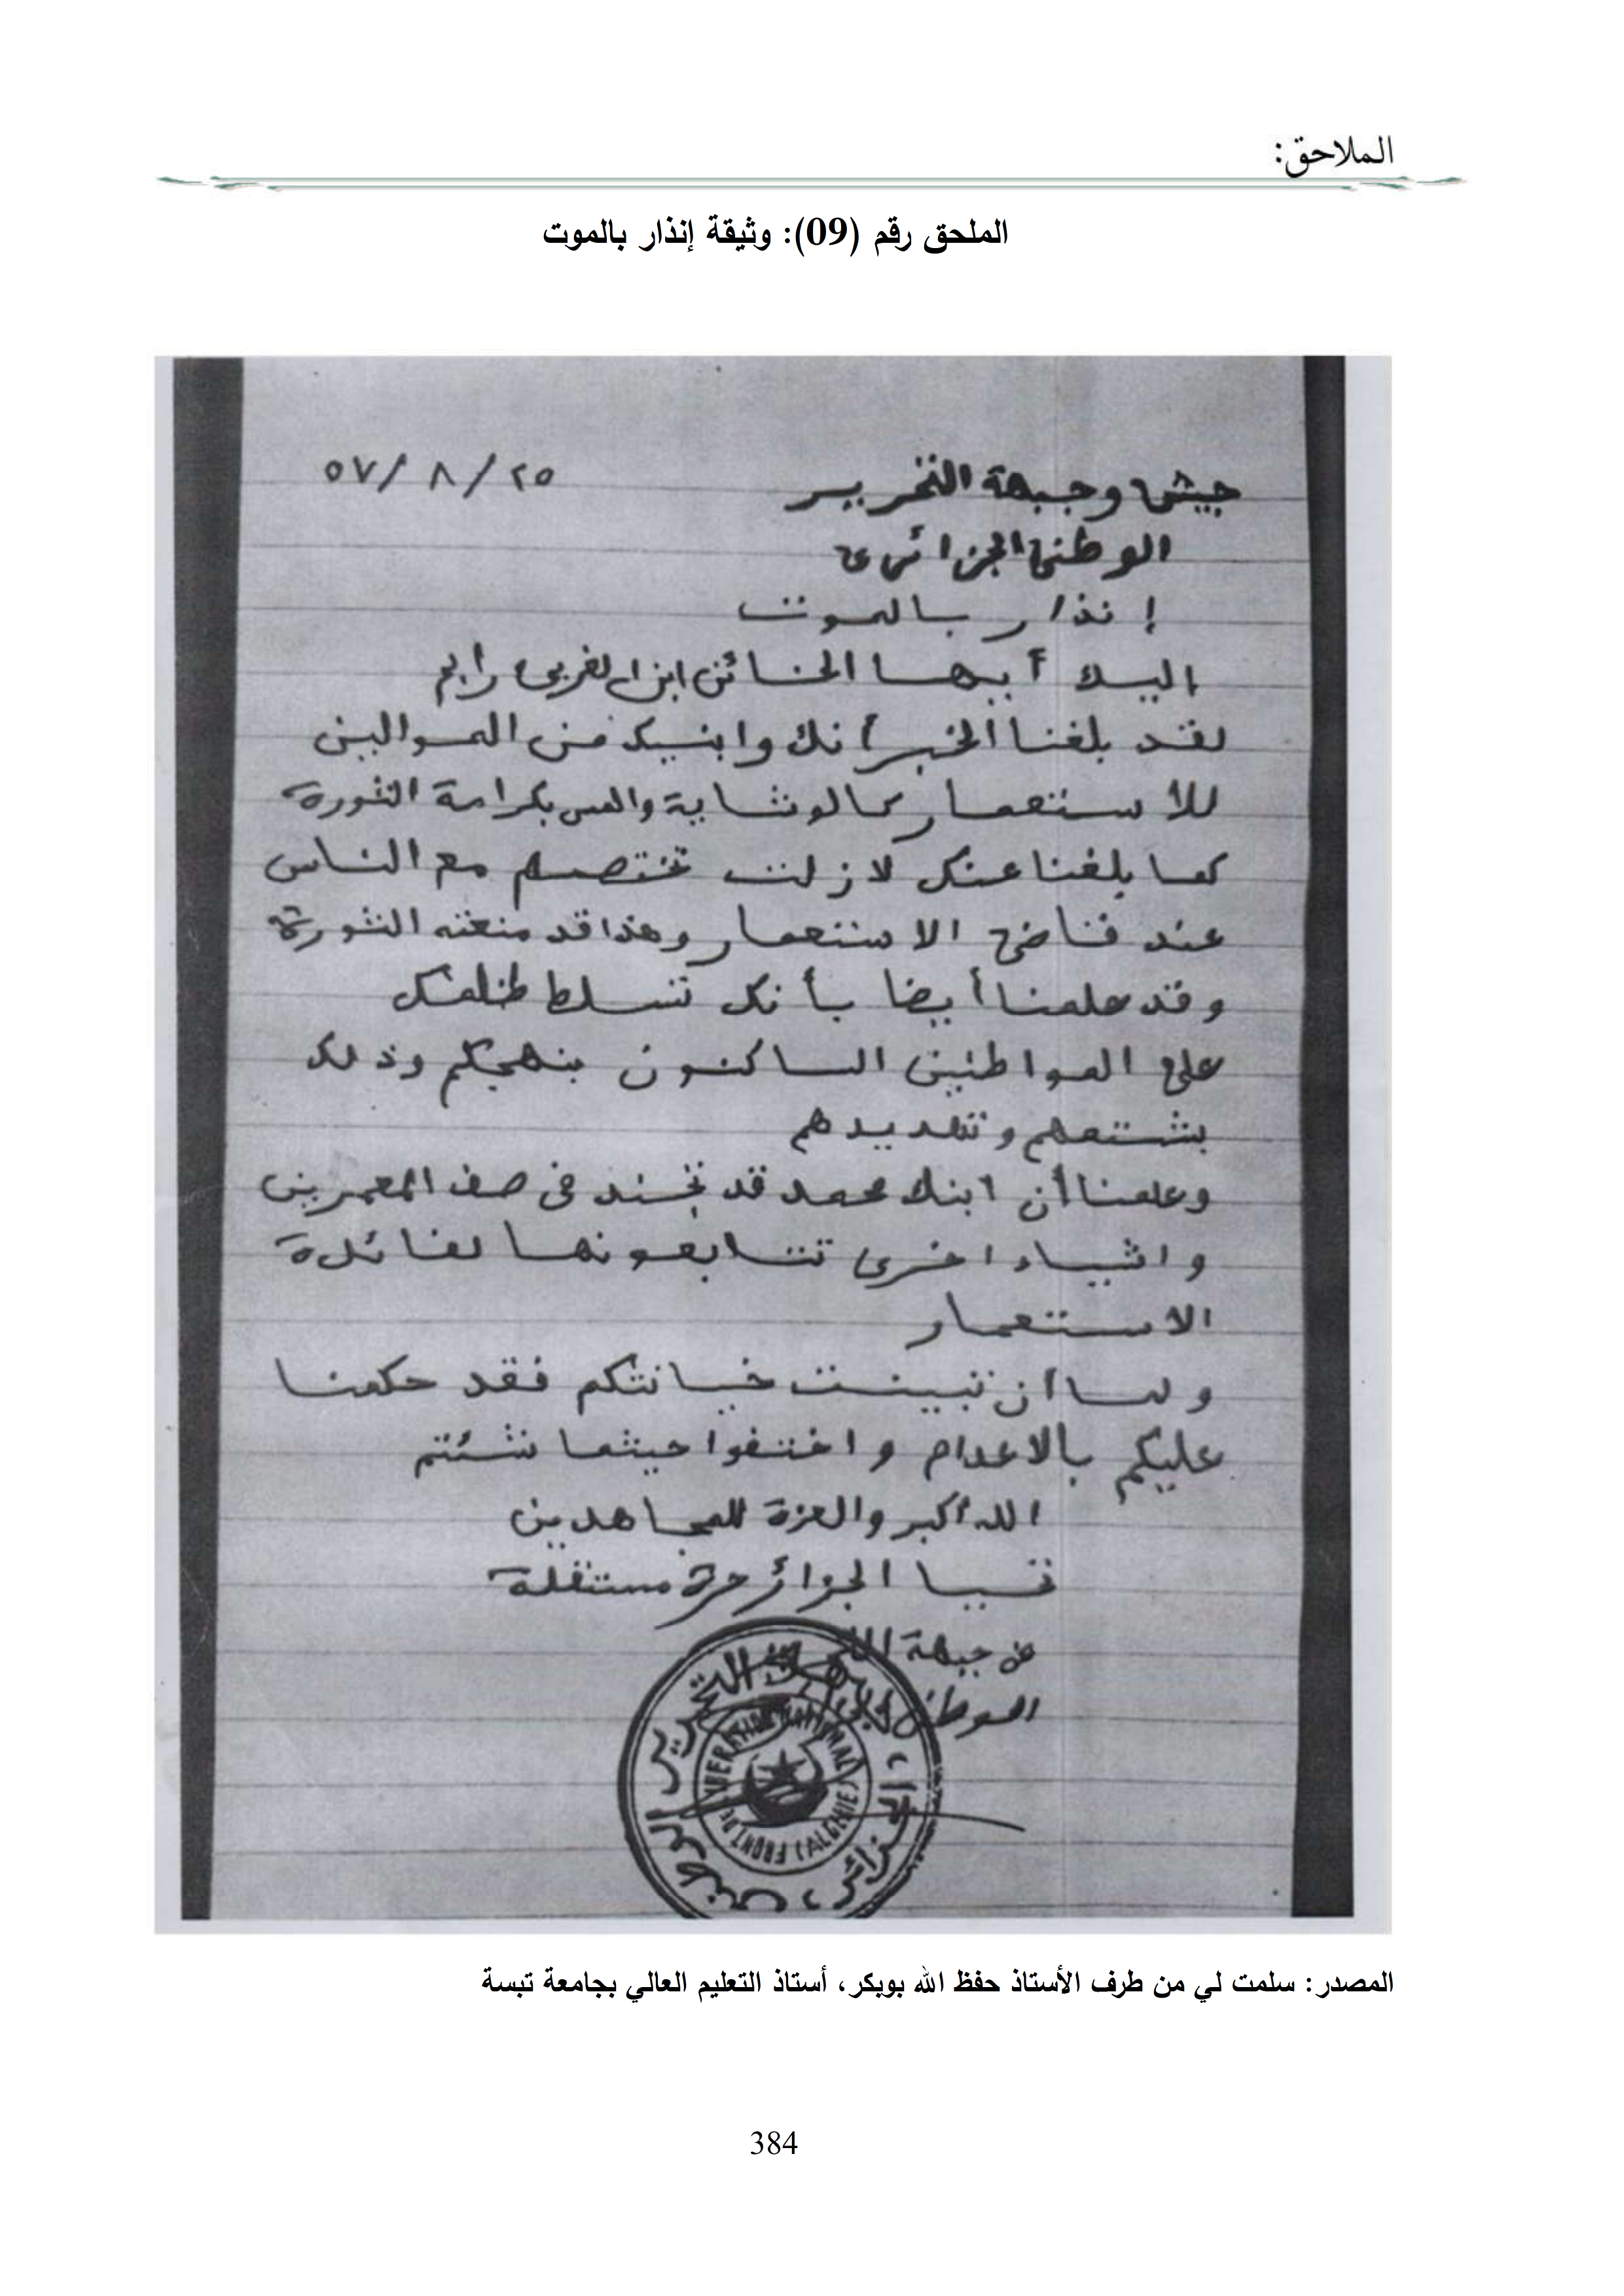 الملاحق:
الملحق رقم (09): وثيقة إنذار بالموت
جيش وجبهة التحرير ٢٥/ ٨ /٥٧
الوطني الجزائري
إنذار بالموت
اليك أيها الخائن ابن الغربي رابح
لقد بلغنا الخبر أنك وابنيك من الموالين
للاستعمار كالوشاية والمس بكرامة الثورة
كما بلغنا عنك لازلت تختصم مع الناس
عند قناضي الاستعمار وهذا قد منعته الثورة
وقد علمنا أيضا بأنك تتسلط
على المواطنين الساكنون بنهجكم وذلك
بشتمهم وتهديدهم
وعلمنا أن ابنك محمد قد تجند في صف المعمرين
واشياء اخرى تتابعونها لفائدة
الاستعمار
ولما ان تبينت خيانتكم فقد حكمنا
عليكم بالاعدام واختفوا حيثما شئتم
الله أكبر والعزة للمجاهدين
تحيا الجزائر حرة مستقلة
عن جبهة التحرير
الوطني
جبهة التحرير الوطني الجزائر
FRONT DE LIBERATION NATIONALE (ALGERIE)
المصدر: سلمت لي من طرف الأستاذ حفظ الله بوبكر، أستاذ التعليم العالي بجامعة تبسة
384